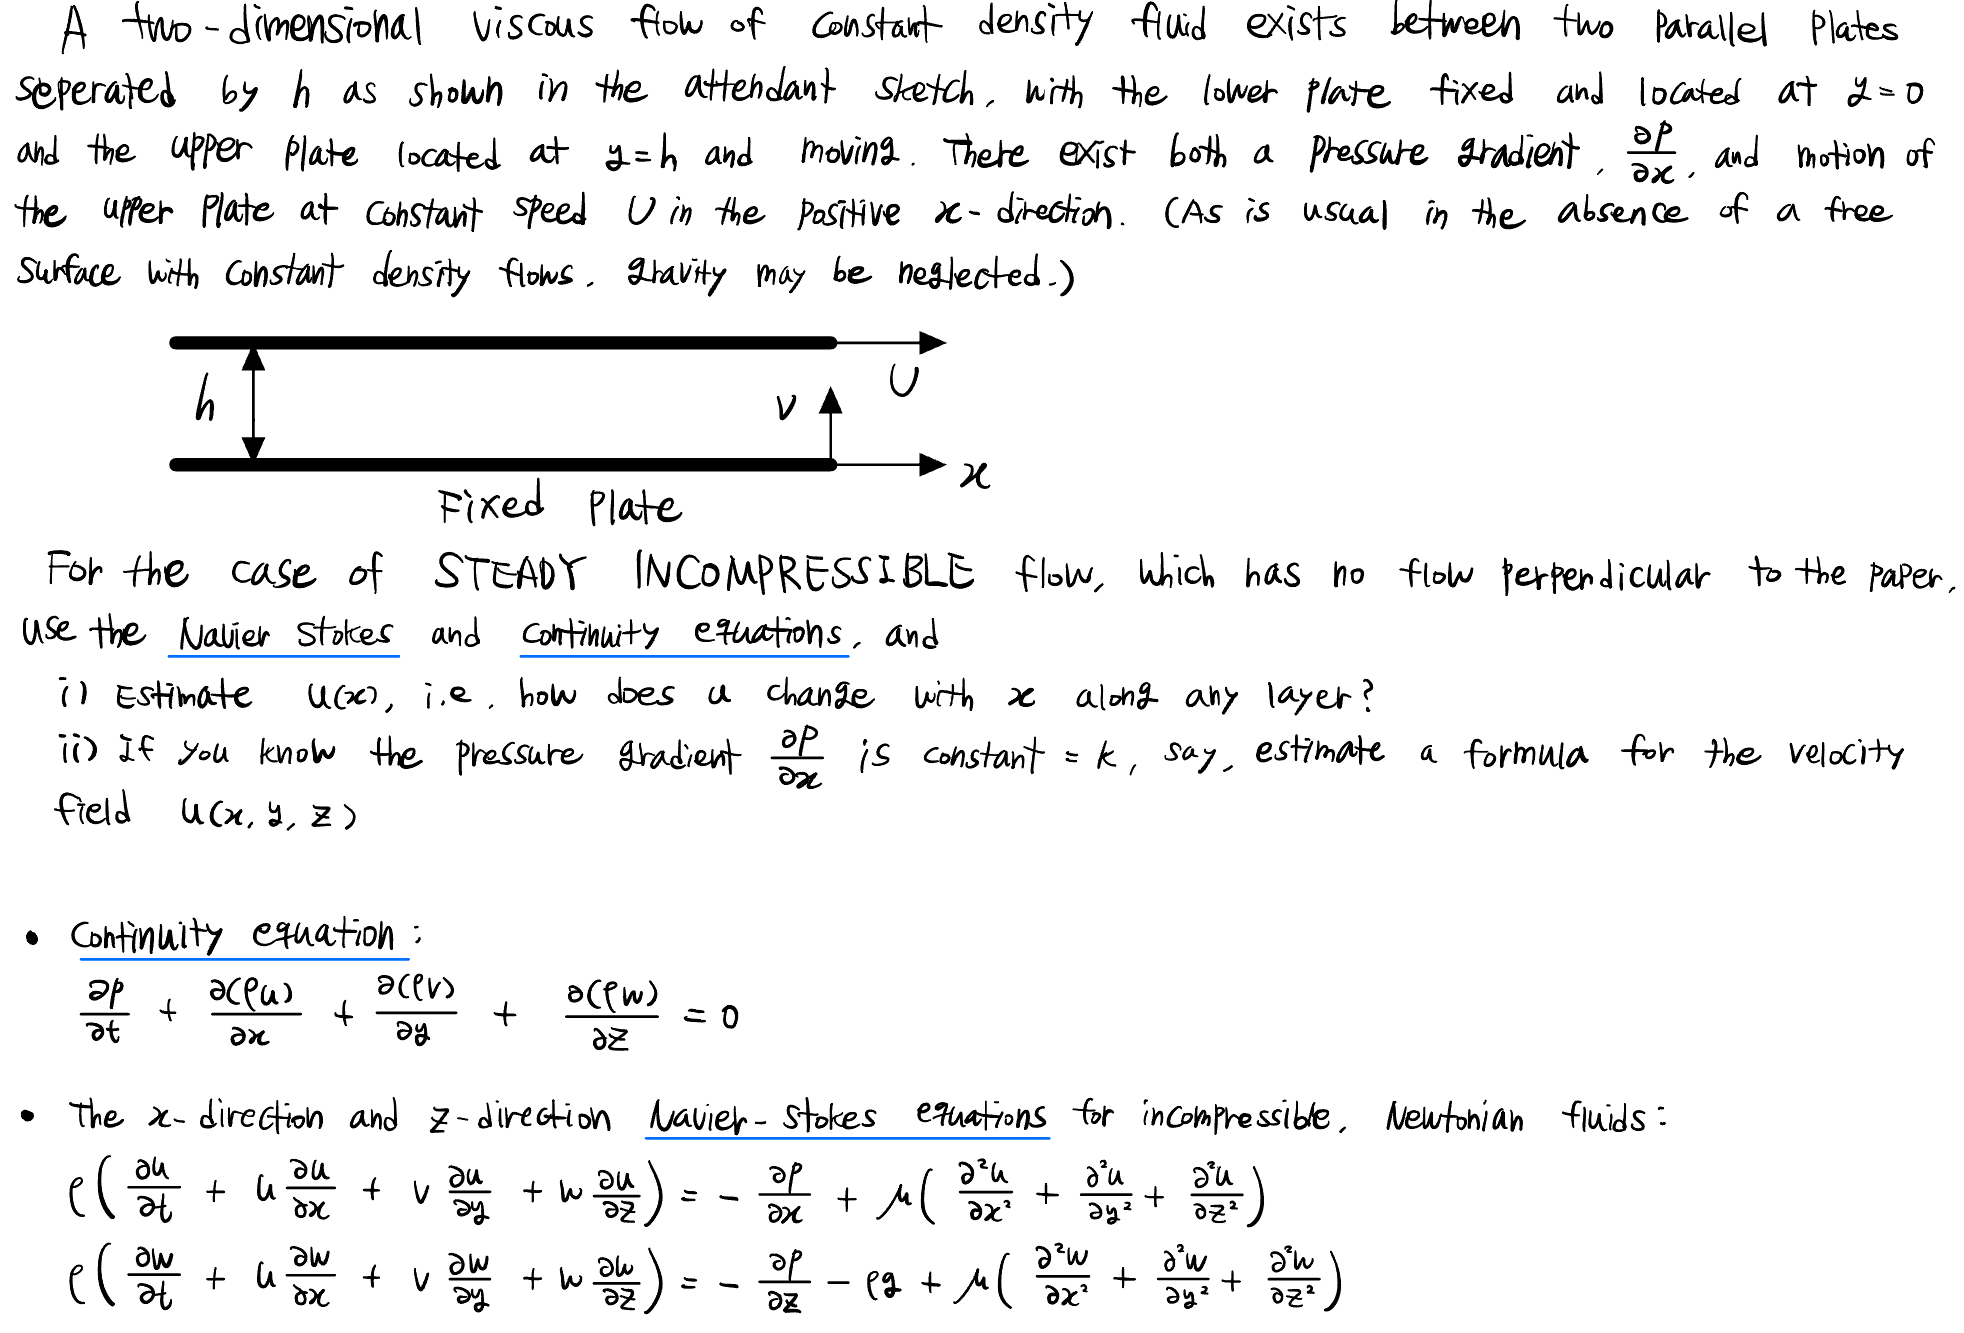 A two-dimensional viscous flow of constant density fluid exists between two parallel plates
seperated by h as shown in the attendant sketch, with the lower plate fixed and located at y=0
and the upper plate located at y=h and moving. There exist both a pressure gradient, ∂P/∂x, and motion of
the upper plate at constant speed U in the positive x-direction. (As is usual in the absence of a free
surface with constant density flows, gravity may be neglected.)
U
h
v
x
Fixed Plate
For the case of STEADY INCOMPRESSIBLE flow, which has no flow perpendicular to the paper,
use the Navier Stokes and continuity equations, and
i) Estimate u(x), i.e. how does u change with x along any layer?
ii) If you know the pressure gradient ∂P/∂x is constant = k, say, estimate a formula for the velocity
field u(x, y, z)
• Continuity equation:
∂ρ/∂t + ∂(ρu)/∂x + ∂(ρv)/∂y + ∂(ρw)/∂z = 0
• The x-direction and z-direction Navier-Stokes equations for incompressible, Newtonian fluids:
ρ(∂u/∂t + u ∂u/∂x + v ∂u/∂y + w ∂u/∂z) = - ∂p/∂x + μ(∂²u/∂x² + ∂²u/∂y² + ∂²u/∂z²)
ρ(∂w/∂t + u ∂w/∂x + v ∂w/∂y + w ∂w/∂z) = - ∂p/∂z - ρg + μ(∂²w/∂x² + ∂²w/∂y² + ∂²w/∂z²)